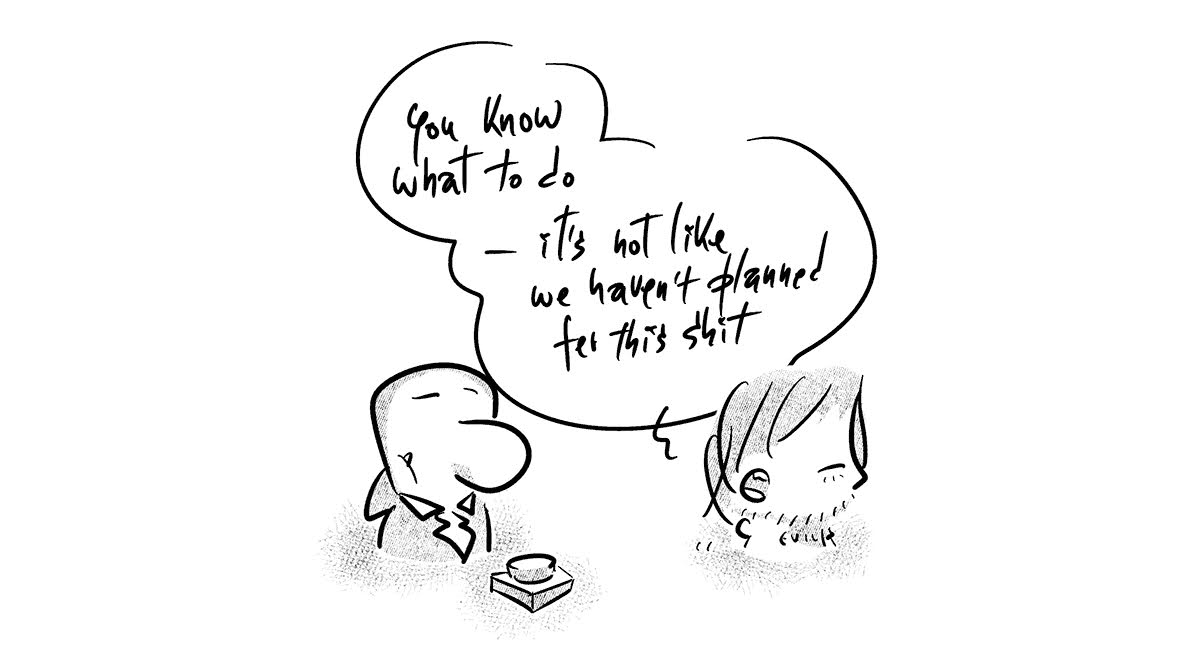 you know
what to do
— it's not like
we haven't planned
for this shit